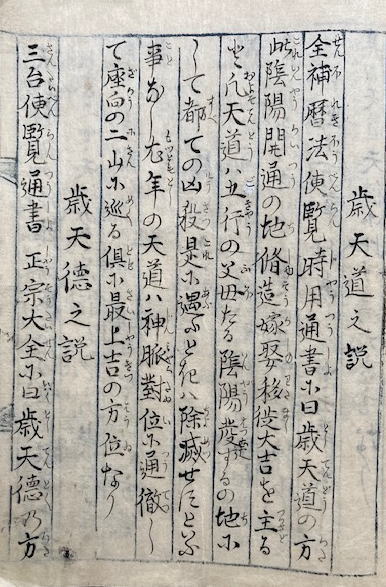 歳天道之説
全補暦法便覧時用通書に曰歳天道の方
此陰陽開通の地脩造嫁娶移徙大吉を主る
と凡天道ハ五行の父母たる陰陽發するの地に
して都ての凶殺是に遇ふときハ除滅せずといふ
事なし尤年の天道ハ神脈對位に通徹し
て座向の二山に巡る倶に最上吉の方位なり
歳天德之説
三台便覧通書 正宗大全に曰歳天德の方